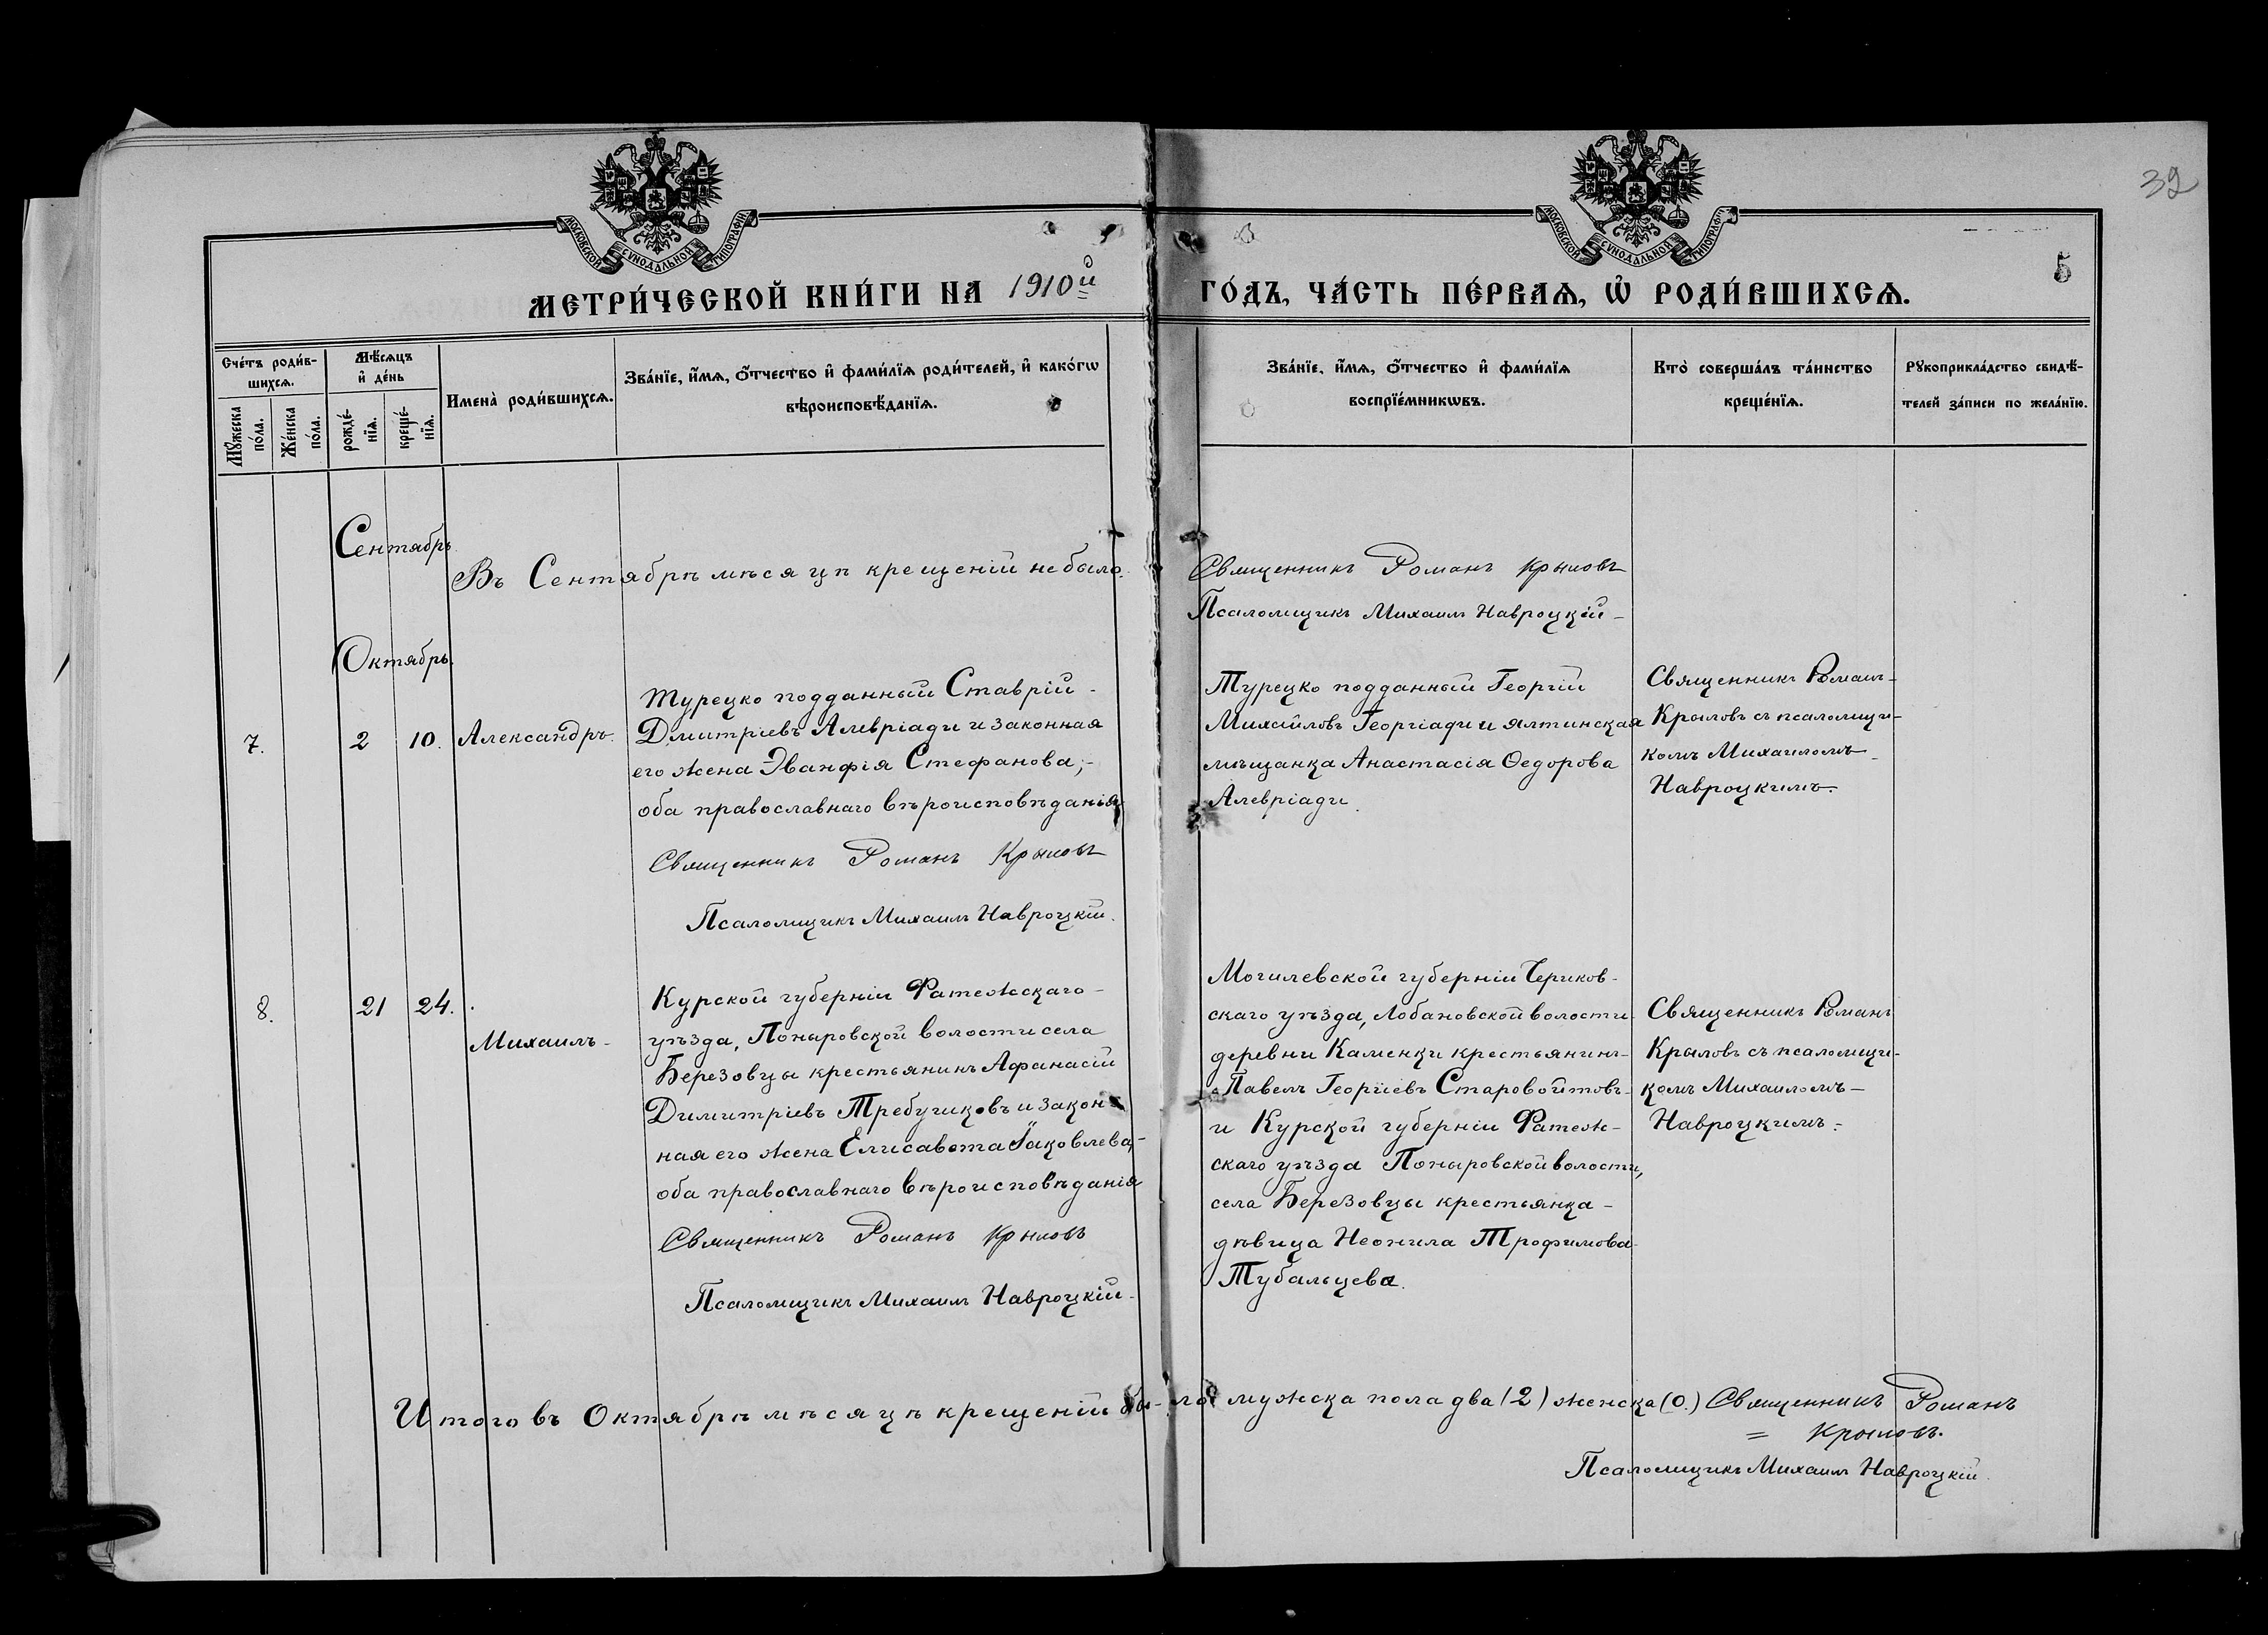 32
МОСКОВСКОЙ СѴНОДАЛЬНОЙ ТИПОГРАФІИ
МОСКОВСКОЙ СѴНОДАЛЬНОЙ ТИПОГРАФІИ
5
МЕТРИ́ЧЕСКОЙ КНИ́ГИ НА 1910й ГО́ДЪ, ЧА́СТЬ ПЕ́РВАѦ, Ѽ РОДИ́ВШИХСѦ.
Сче́тъ роди́в-
шихсѧ.
Мꙋ́жеска по́ла.
Же́нска по́ла.
Мѣ́сѧцъ
и҆ де́нь
рожде́-
нїѧ.
креще́-
нїѧ.
И҆мена̀ роди́вшихсѧ.
Зва́нїе, и҆́мѧ, ѻ҆́тчество и҆ фами́лїѧ роди́телей, и҆ како́гѡ
вѣроисповѣ́данїѧ.
Зва́нїе, и҆́мѧ, ѻ҆́тчество и҆ фами́лїѧ
воспрїе́мникѡвъ.
Кто̀ соверша́лъ та́инство
креще́нїѧ.
Рꙋкоприкла́дство свидѣ́-
телей за́писи по жела́нїю.
Сентябрь
Въ Сентябрѣ мѣсяцѣ крещеній не было.
Священникъ Романъ Крыловъ
Псаломщикъ Михаилъ Навроцкій
Октябрь.
7.
2
10.
Александръ.
Турецко подданный Ставрій
Дмитріевъ Алевріади и законная
его жена Эванфія Стефанова;
оба православнаго вѣроисповѣданія
Священникъ Романъ Крыловъ
Псаломщикъ Михаилъ Навроцкій.
Турецко подданный Георгій
Михайловъ Георгіади и ялтинская
мѣщанка Анастасія Ѳедорова
Алевріади.
Священникъ Романъ
Крыловъ съ псаломщи-
комъ Михаиломъ
Навроцкимъ.
8.
21
24.
Михаилъ
Курской губерніи Фатежскаго
уѣзда, Поныровской волости села
Березовцы крестьянинъ Афанасій
Димитріевъ Требучиковъ и закон-
ная его жена Елисавета Іаковлева,
оба православнаго вѣроисповѣданія
Священникъ Романъ Крыловъ
Псаломщикъ Михаилъ Навроцкій
Могилевской губерніи Чериков-
скаго уѣзда, Лобановской волости
деревни Каменки крестьянинъ
Павелъ Георгіевъ Старовойтовъ
и Курской губерніи Фатеж-
скаго уѣзда Поныровской волости,
села Березовцы крестьянка
дѣвица Неонила Трофимова
Тубальцева.
Священникъ Романъ
Крыловъ съ псаломщи-
комъ Михаиломъ
Навроцкимъ.
Итого въ Октябрѣ мѣсяцѣ крещеній бы-ло мужска пола два (2) женска (0.) Священникъ Романъ
= Крыловъ.
Псаломщикъ Михаилъ Навроцкій.